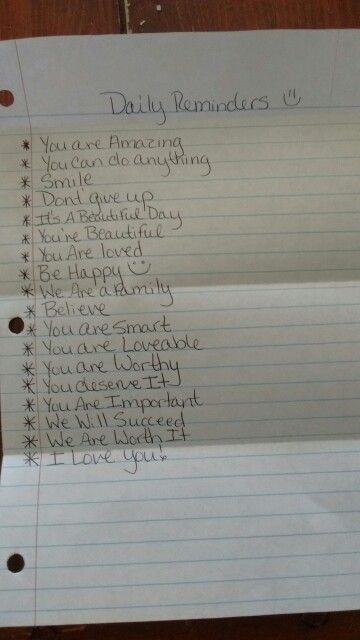 Daily Reminders ☺
* You are Amazing
* You can do anything
* Smile
* Dont give up
* It's A Beautiful Day
* You're Beautiful
* You Are loved
* Be Happy ☺
* We Are a Family
* Believe
* You are Smart
* You are Loveable
* You are Worthy
* You deserve It
* You Are Important
* We Will Succeed
* We Are Worth It
* I Love you!